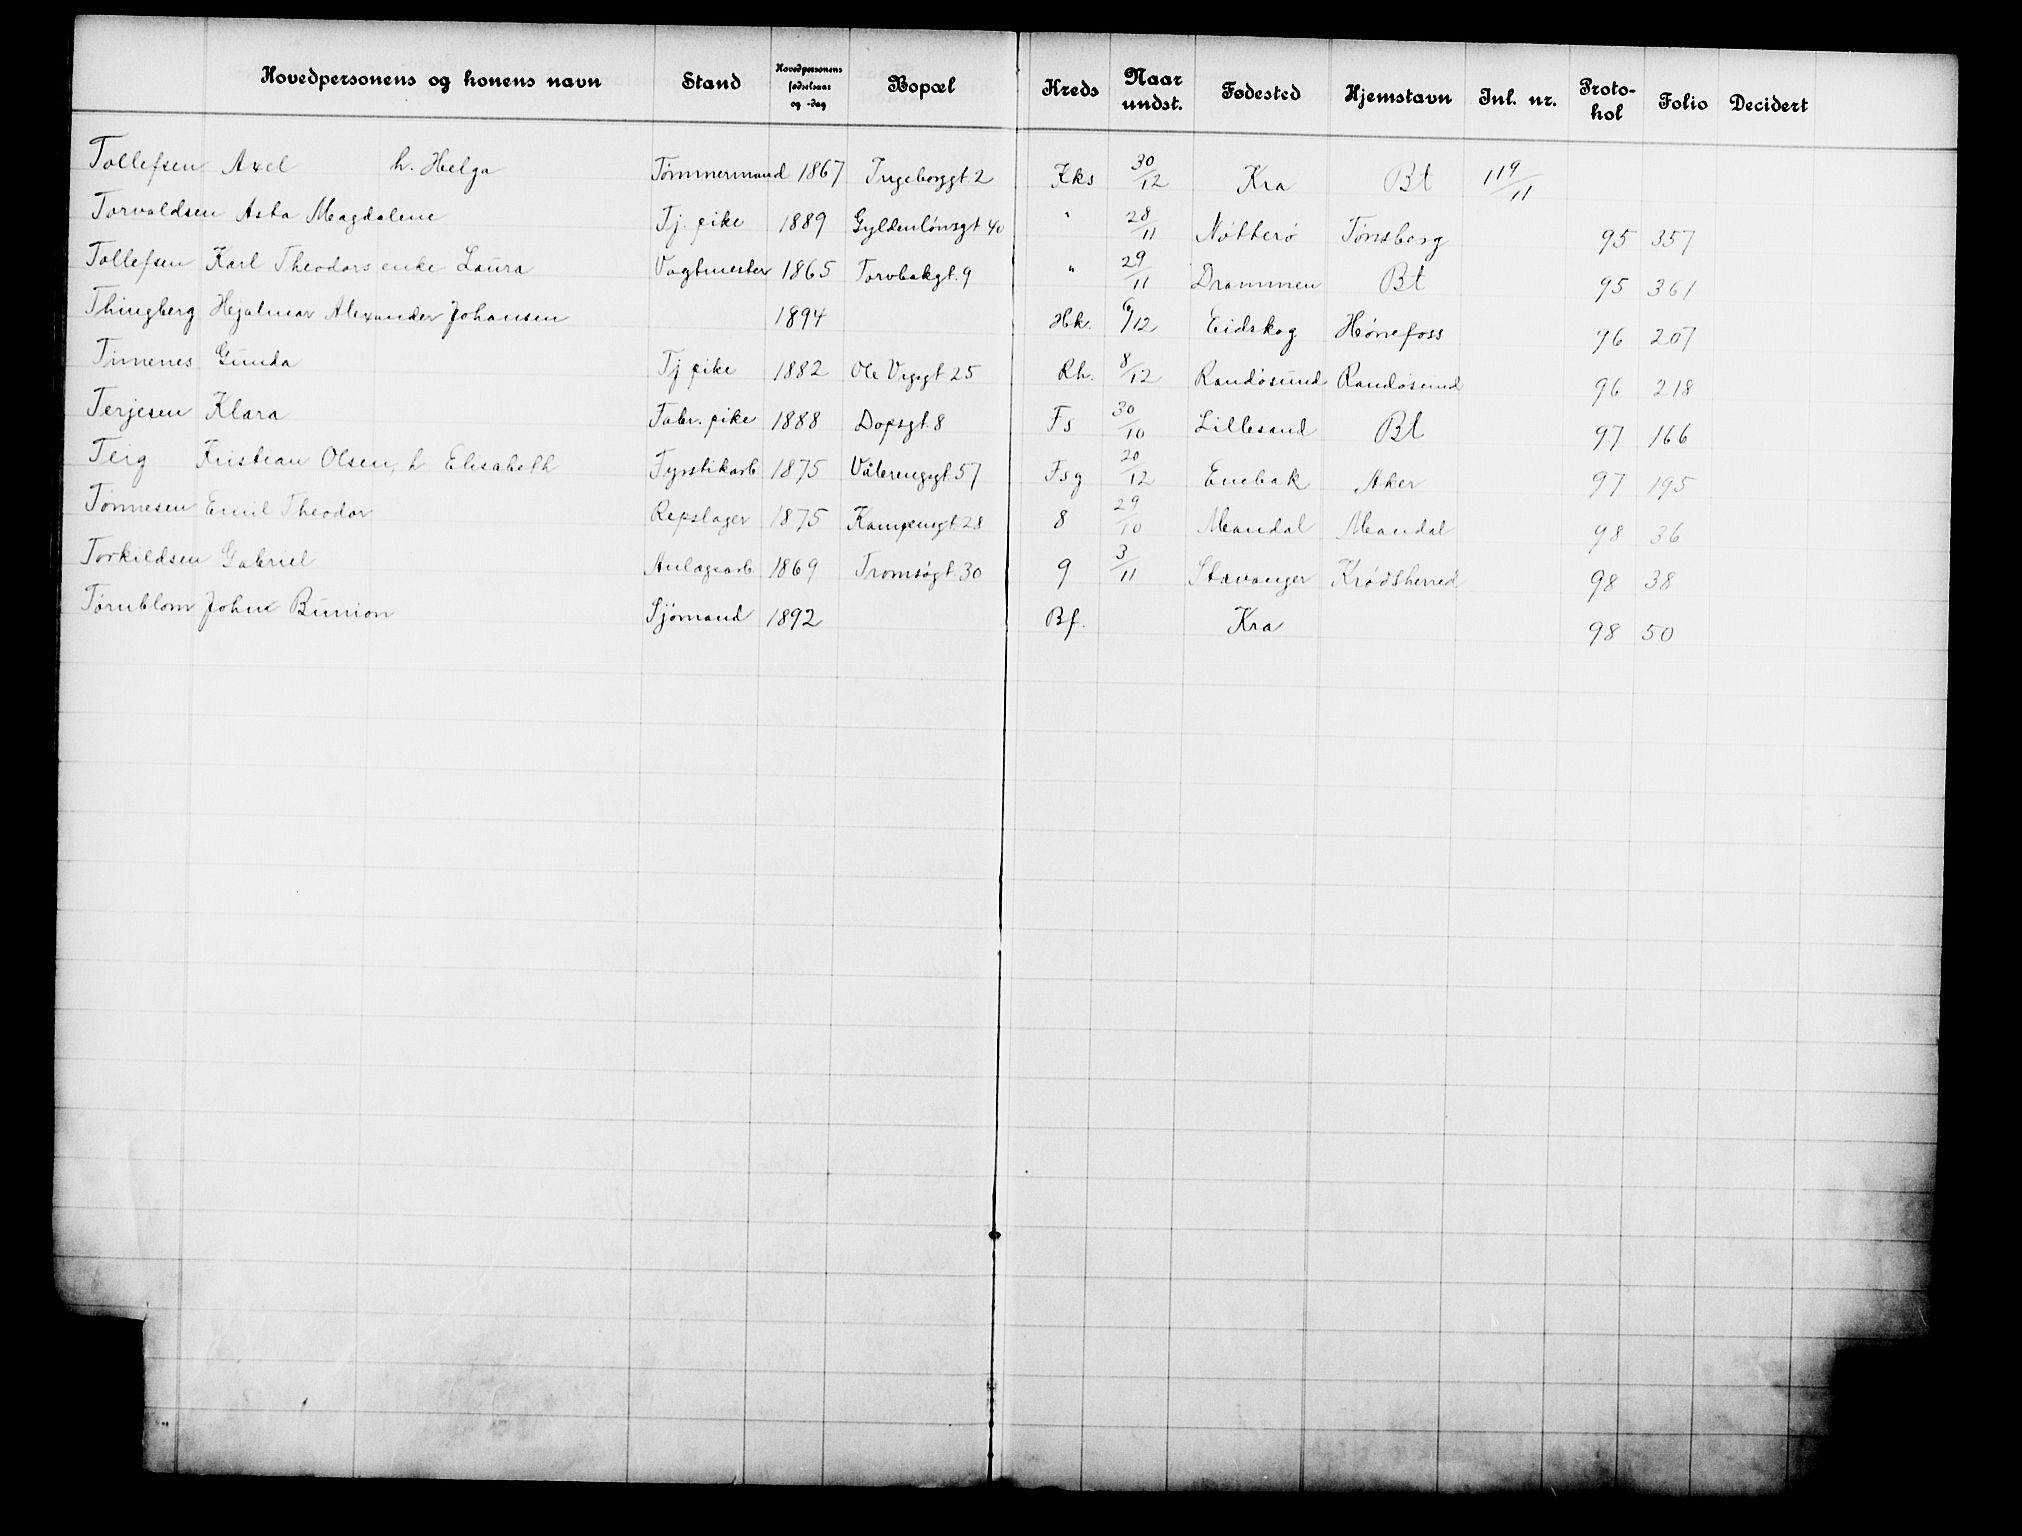 Hovedpersonens og konens navn Stand Hovedpersonens fødselsaar og -dag Bopæl Kreds Naar undst. Fødested Hjemstavn Inl. nr. Protokol Folio Decidert
Tollefsen Axel h. Helga Tømmermand 1867 Ingeborggt. 2 Kks 30/12 Kra Bt 119/11
Torvaldsen Asta Magdalene Tj. pike 1889 Gyldenløvsgt 40 " 28/11 Nøtterø Tønsberg 95 357
Tollefsen Karl Theodors enke Laura Vagtmester 1865 Torvbakgt. 9 " 29/11 Drammen Bt 95 361
Thingberg Hjalmar Alexander Johansen 1894 Hk. 6/12 Eidskog Hønefoss 96 207
Timenes Gunda Tj pike 1882 Ole Vigsgt 25 Rh. 8/12 Randøsund Randøsund 96 218
Terjesen Klara Fabr. pike 1888 Dopsgt. 8 Fs 30/10 Lillesand Bt 97 166
Teig Kristian Olsen, h Elisabeth Fyrstikarb. 1875 Vålerengsgt 57 Fsg 20/12 Enebak Aker 97 195
Tønnesen Emil Theodor Repslager 1875 Kampensgt. 28 8 29/10 Mandal Mandal 98 36
Torkildsen Gabriel Anlægsarb. 1869 Tromsøgt. 30 9 3/11 Stavanger Krødsherred 98 38
Tørnblom John Bunion Sjømand 1892 Bf. Kra 98 50